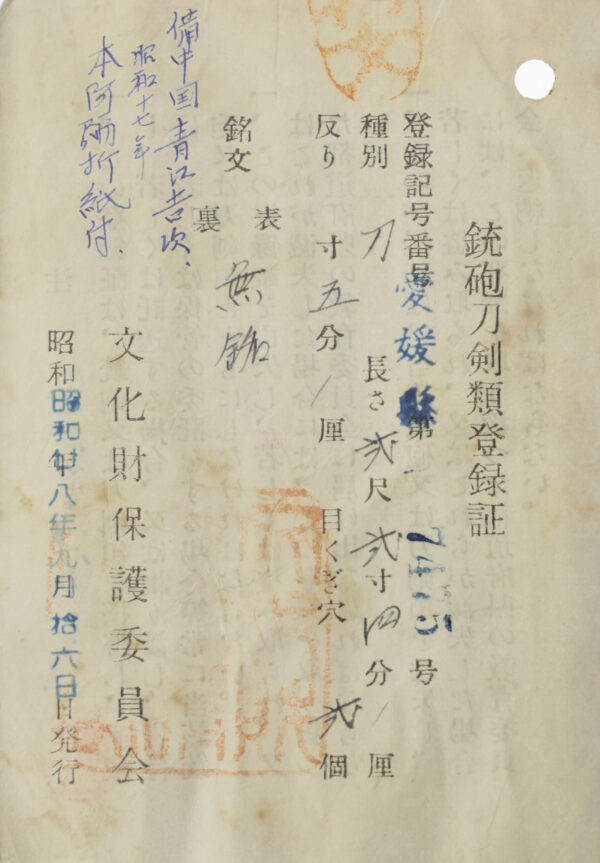 銃砲刀剣類登録証
登録記号番号愛媛縣第 号
種別 刀 長さ 弐尺 弐寸 四分 / 厘
反り 寸 五分 / 厘 目くぎ穴 弐個
銘文 表 無銘
裏
備中国青江吉次、
昭和十七年
本阿彌折紙付、
文化財保護委員会
昭和 昭和廿八年九月拾六日 日発行